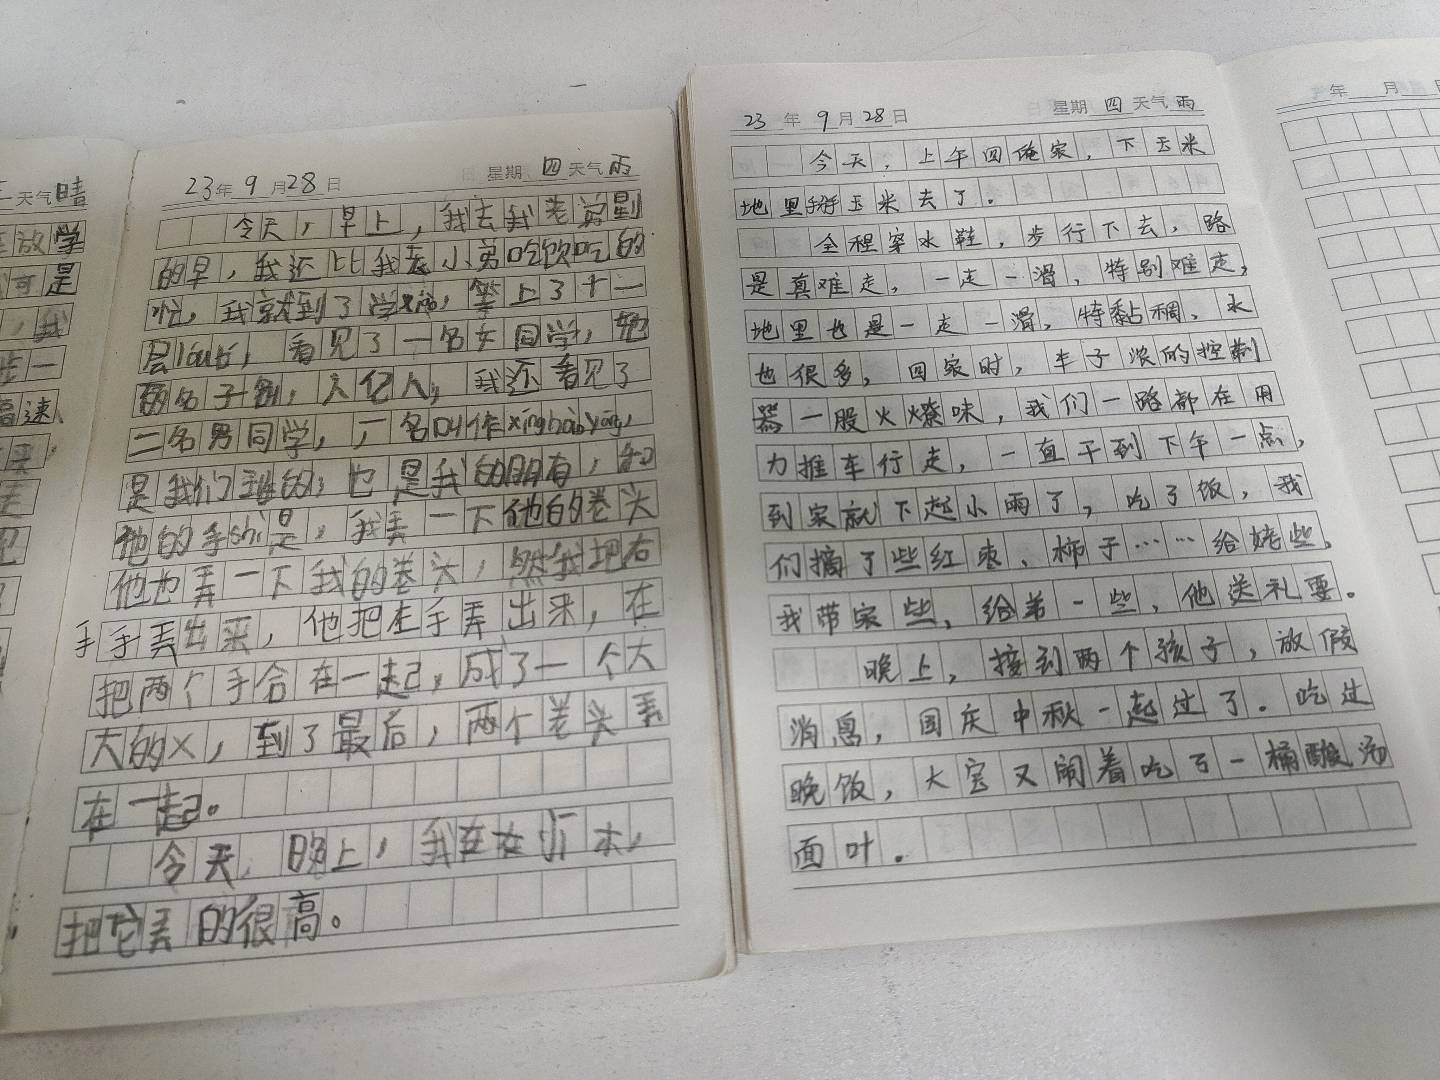 天气晴
放学
可是
,我
步一
速、
23年9月28日 星期四天气雨
今天,早上,我去我老算到
的早,我还比我表小弟吃饮吃的
忙,我就到了学xiào,等上了十一
层lóutī,看见了一名女同学,她
的名子创,人亿人,我还看见了
二名男同学,一名叫作xínghàoyáng,
是我们班的,也是我的朋有,和
他的手shì是,我弄一下他的卷头
他也弄一下我的卷头,然我把右
手手弄出来,他把左手弄出来,在
把两个手合在一起,成了一个大
大的X,到了最后,两个卷头弄
在一起。
今天,晚上,我在在小本,
把它弄的很高。
23年9月28日 星期四天气雨
今天,上午回俺家,下玉米
地里掰玉米去了。
全程穿水鞋,步行下去,路
是真难走,一走一滑,特别难走,
地里也是一走一滑,特黏稠,水
也很多,回家时,车子浓的控制
器一股火燎味,我们一路都在用
力推车行走,一直干到下午一点,
到家就下起小雨了,吃了饭,我
们摘了些红枣、柿子……给姥些,
我带家些,给弟一些,他送礼要。
晚上,接到两个孩子,放假
消息,国庆中秋一起过了。吃过
晚饭,大宝又闹着吃了一桶酸汤
面叶。
年 月 日